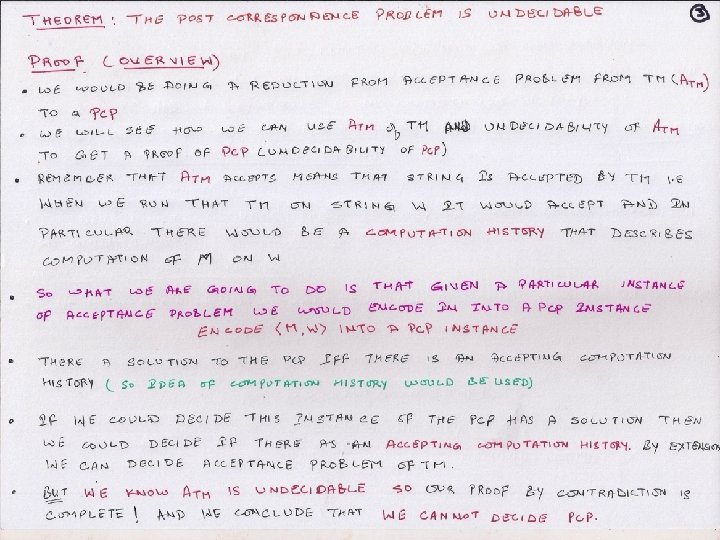 THEOREM: THE POST CORRESPONDENCE PROBLEM IS UNDECIDABLE 3
PROOF (OVERVIEW)
• WE WOULD BE DOING A REDUCTION FROM ACCEPTANCE PROBLEM FROM TM (ATM)
TO a PCP
• WE WILL SEE HOW WE CAN USE ATM of TM AND UNDECIDABILITY OF ATM
TO GET A PROOF OF PCP (UNDECIDABILITY OF PCP)
• REMEMBER THAT ATM ACCEPTS MEANS THAT STRING IS ACCEPTED BY TM i.e
WHEN WE RUN THAT TM ON STRING W IT WOULD ACCEPT AND IN
PARTICULAR THERE WOULD BE A COMPUTATION HISTORY THAT DESCRIBES
COMPUTATION OF M ON W
• SO WHAT WE ARE GOING TO DO IS THAT GIVEN A PARTICULAR INSTANCE
OF ACCEPTANCE PROBLEM WE WOULD ENCODE IN INTO A PCP INSTANCE
ENCODE ⟨M,W⟩ INTO A PCP INSTANCE
• THERE A SOLUTION TO THE PCP IFF THERE IS AN ACCEPTING COMPUTATION
HISTORY (SO IDEA OF COMPUTATION HISTORY WOULD BE USED)
• IF WE COULD DECIDE THIS INSTANCE OF THE PCP HAS A SOLUTION THEN
WE COULD DECIDE IF THERE AS AN ACCEPTING COMPUTATION HISTORY. BY EXTENSION
WE CAN DECIDE ACCEPTANCE PROBLEM OF TM.
• BUT WE KNOW ATM IS UNDECIDABLE SO OUR PROOF BY CONTRADICTION IS
COMPLETE! AND WE CONCLUDE THAT WE CANNOT DECIDE PCP.